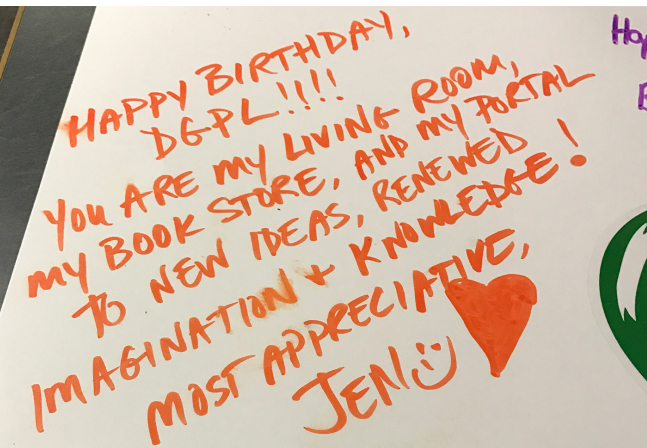 HAPPY BIRTHDAY,
DGPL!!!!
YOU ARE MY LIVING ROOM,
MY BOOK STORE, AND MY PORTAL
TO NEW IDEAS, RENEWED
IMAGINATION + KNOWLEDGE!
MOST APPRECIATIVE,
JEN